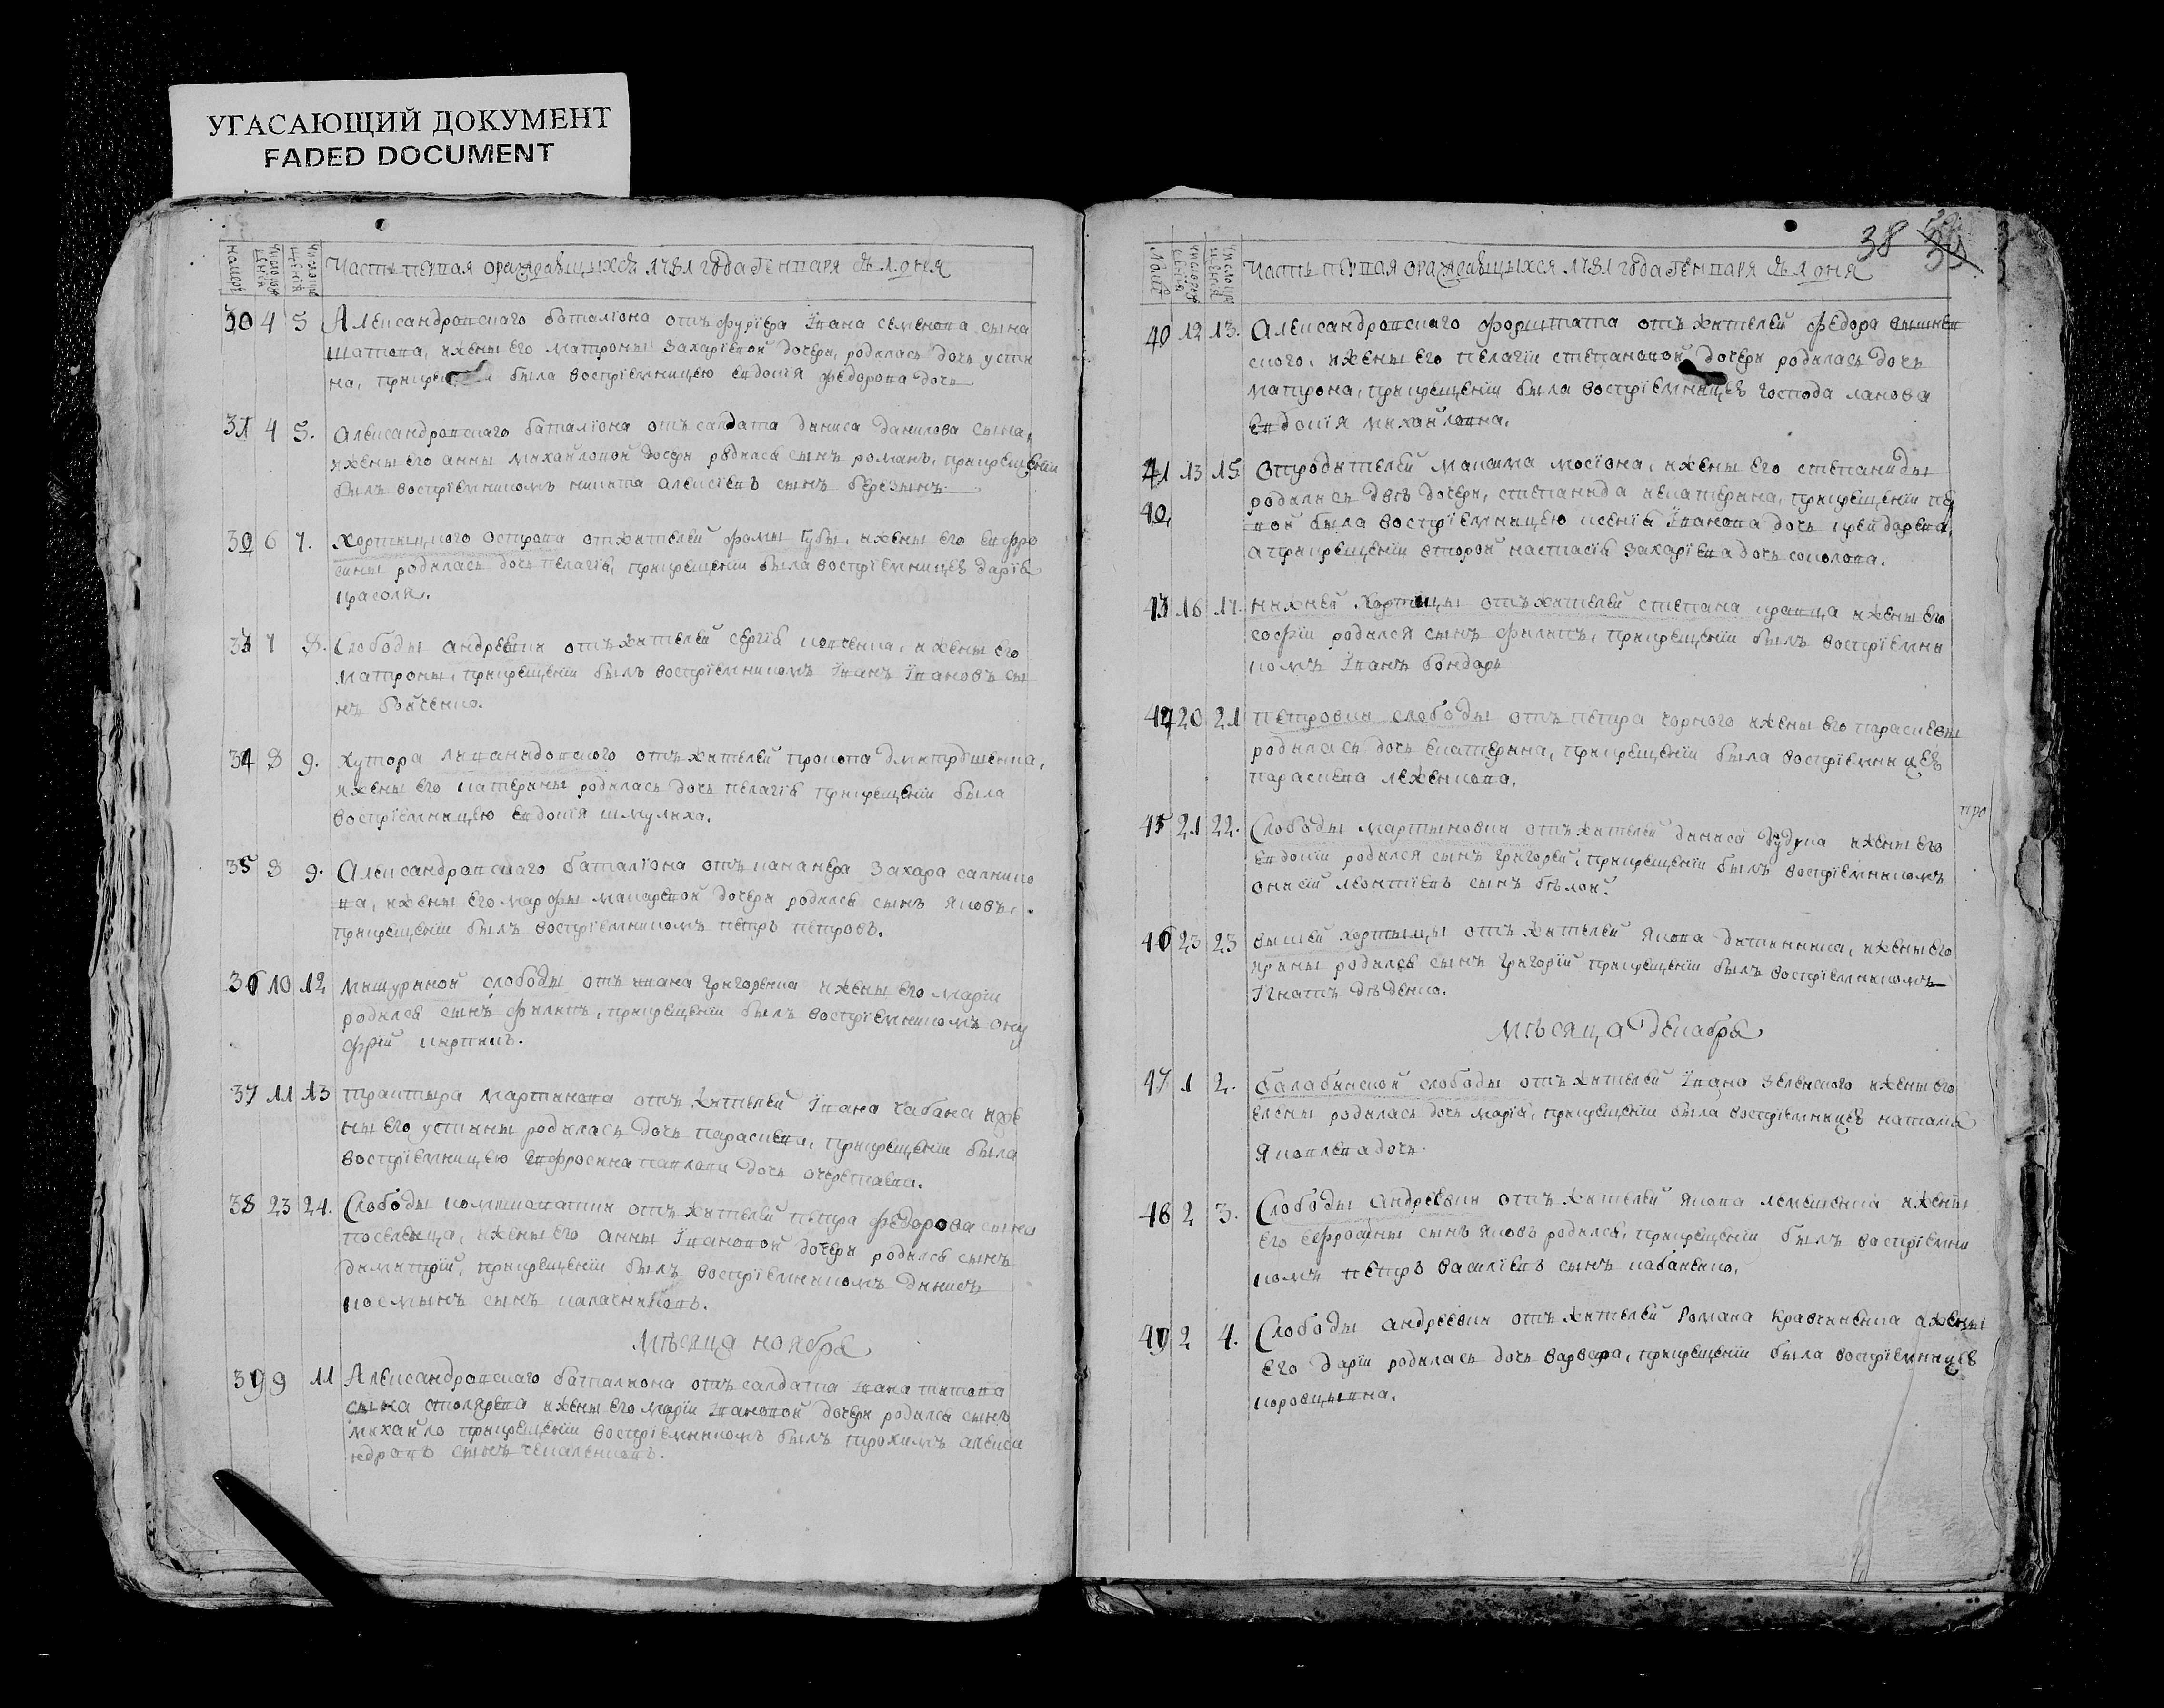 УГАСАЮЩИЙ ДОКУМЕНТ
FADED DOCUMENT
Часть первая ораждавщыхся 1781 года Генваря съ 1 дня
30 4 5 Александровского баталіона отъ фуріера Iвана семенова сына
шатова, ижены его матроны захаріевой дочери, родилась дочь усти
на, была воспріемницею евдокія федорова дочь
31 4 5. Александровскаго баталіона отъ салдата диниса данилова сына,
ижены его анны михайловой дочери родился сынъ романъ, прикрещеніи
былъ воспріемникомъ никита алексіевъ сынъ березынъ
6 7. Хортыцкого острова отжителей фомы губы, ижены его евфро
сины родилась дочь пелагія, прикрещеніи была воспріемницея дарія
красоля.
7 8. Слободы андреевки отъ жителей сергія копченка, ижены его
матроны, прикрещеніи былъ воспріемникомъ Iванъ Iвановъ сы
нъ бойченко.
34 8 9. Хутора отъ жителей прокопа дмитрушенка,
ижены его катерины родилась дочь пелагія прикрещеніи была
воспріемницею евдокія шмулиха.
35 8 9. Александровскаго баталіона отъ кананера Захара салнико
ва, ижены его марфы макаревой дочери родился сынъ яковъ,
прикрещеніи былъ воспріемникомъ петръ петровъ.
36 10 12 мишуриной слободы отъ ивана григоренка ижены его маріи
родился сынъ филипъ, прикрещеніи былъ воспріемникомъ ону
фрій кирпанъ.
37 11 13 трактыра мартинова отъ жителей Iвана чабана иже
ны его устины родилась дочь парасиева, прикрещеніи была
воспріемницею евфросина павлова дочь
38 23 24. Слободы отъ жителей петра федорова сына
поселенца, ижены его анны Iвановой дочери родился сынъ
димитрій, прикрещеніи былъ воспріемникомъ динисъ
косминъ сынъ калачниковъ.
Мѣсяца ноября
39 9 11 Александровскаго баталиона отъ салдата Iвана титова
сына столярева ижены его маріи Iвановой дочери родился сынъ
михайло прикрещеніи воспріемникомъ былъ трохимъ алекса
ндровъ сынъ чекаленковъ.
38
Часть первая ораждавщыхся 1781 года Генваря съ 1 дня
40 12 13. Александровскаго форштата отъ жителей федора вышнев
ского, ижены его пелагіи степановой дочери родилась дочь
матрона, прикрещеніи была воспріемницея господа ланова
евдокія михайловна.
41 13 15. Отродителей максима мосіона, ижены его степаниды
родились двѣ дочери, степанида икатерина, прикрещеніи пер
вой была воспріемницею ксенія Iванова дочь
априкрещеніи второй настасія захаріева дочь соколова.
43 16 17. нижней Хортицы отъ жителей степана кравца ижены его
софіи родился сынъ филипъ, прикрещеніи былъ воспріемни
комъ Iванъ бондарь
20 21 петровки слободы отъ петра чорного ижены его парасиевы
родилась дочь екатерина, прикрещеніи была воспріемницея
парасиева леженкова.
про
45 21 22. Слободы мартыновки отъ жителей диниса дудука ижены его
евдокіи родился сынъ григорей, прикрещеніи былъ воспріемникомъ
онисій леонтіевъ сынъ бѣлой.
46 23 23 вышей хортыцы отъ жителей якова дитинника, ижены его
ирины родился сынъ григорій прикрещеніи былъ воспріемникомъ
Iгнатъ дѣденко.
Мѣсяца декабря
47 1 2. балабинской слободы отъ жителей Iвана зеленского ижены его
елены родилась дочь марія, прикрещеніи была воспріемницея наталія
яковлева дочь.
48 2 3. Слободы андреевки отъ жителей якова лемешенка ижены
его ефросины сынъ яковъ родился, прикрещеніи былъ воспріемни
комъ петръ василіевъ сынъ кабаненко.
49 2 4. Слободы андреевки отъ жителей Романа кравчиненка ижены
его даріи родилась дочь варвара, прикрещеніи была воспріемницея